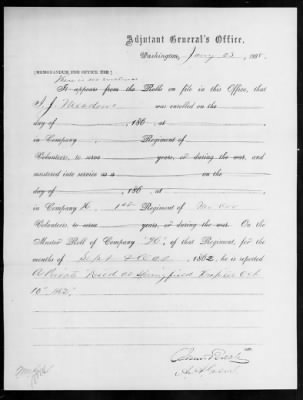 Adjutant General's Office,
Washington, Jany 23, 18
[MEMORANDUM FOR OFFICE USE.]
There is no evidence
It appears from the Rolls on file in this Office, that
J. J. was enrolled on the
day of , 186 , at ,
in Company , Regiment of
Volunteers, to serve years, or during the war, and
mustered into service as a on the
day of , 186 , at ,
in Company , 1st Regiment of Mo Cav
Volunteers, to serve years, or during the war. On the
Muster Roll of Company , of that Regiment, for the
months of Sept & Oct , 1862, he is reported
A Private Died at Springfield Oct
10" 1862.